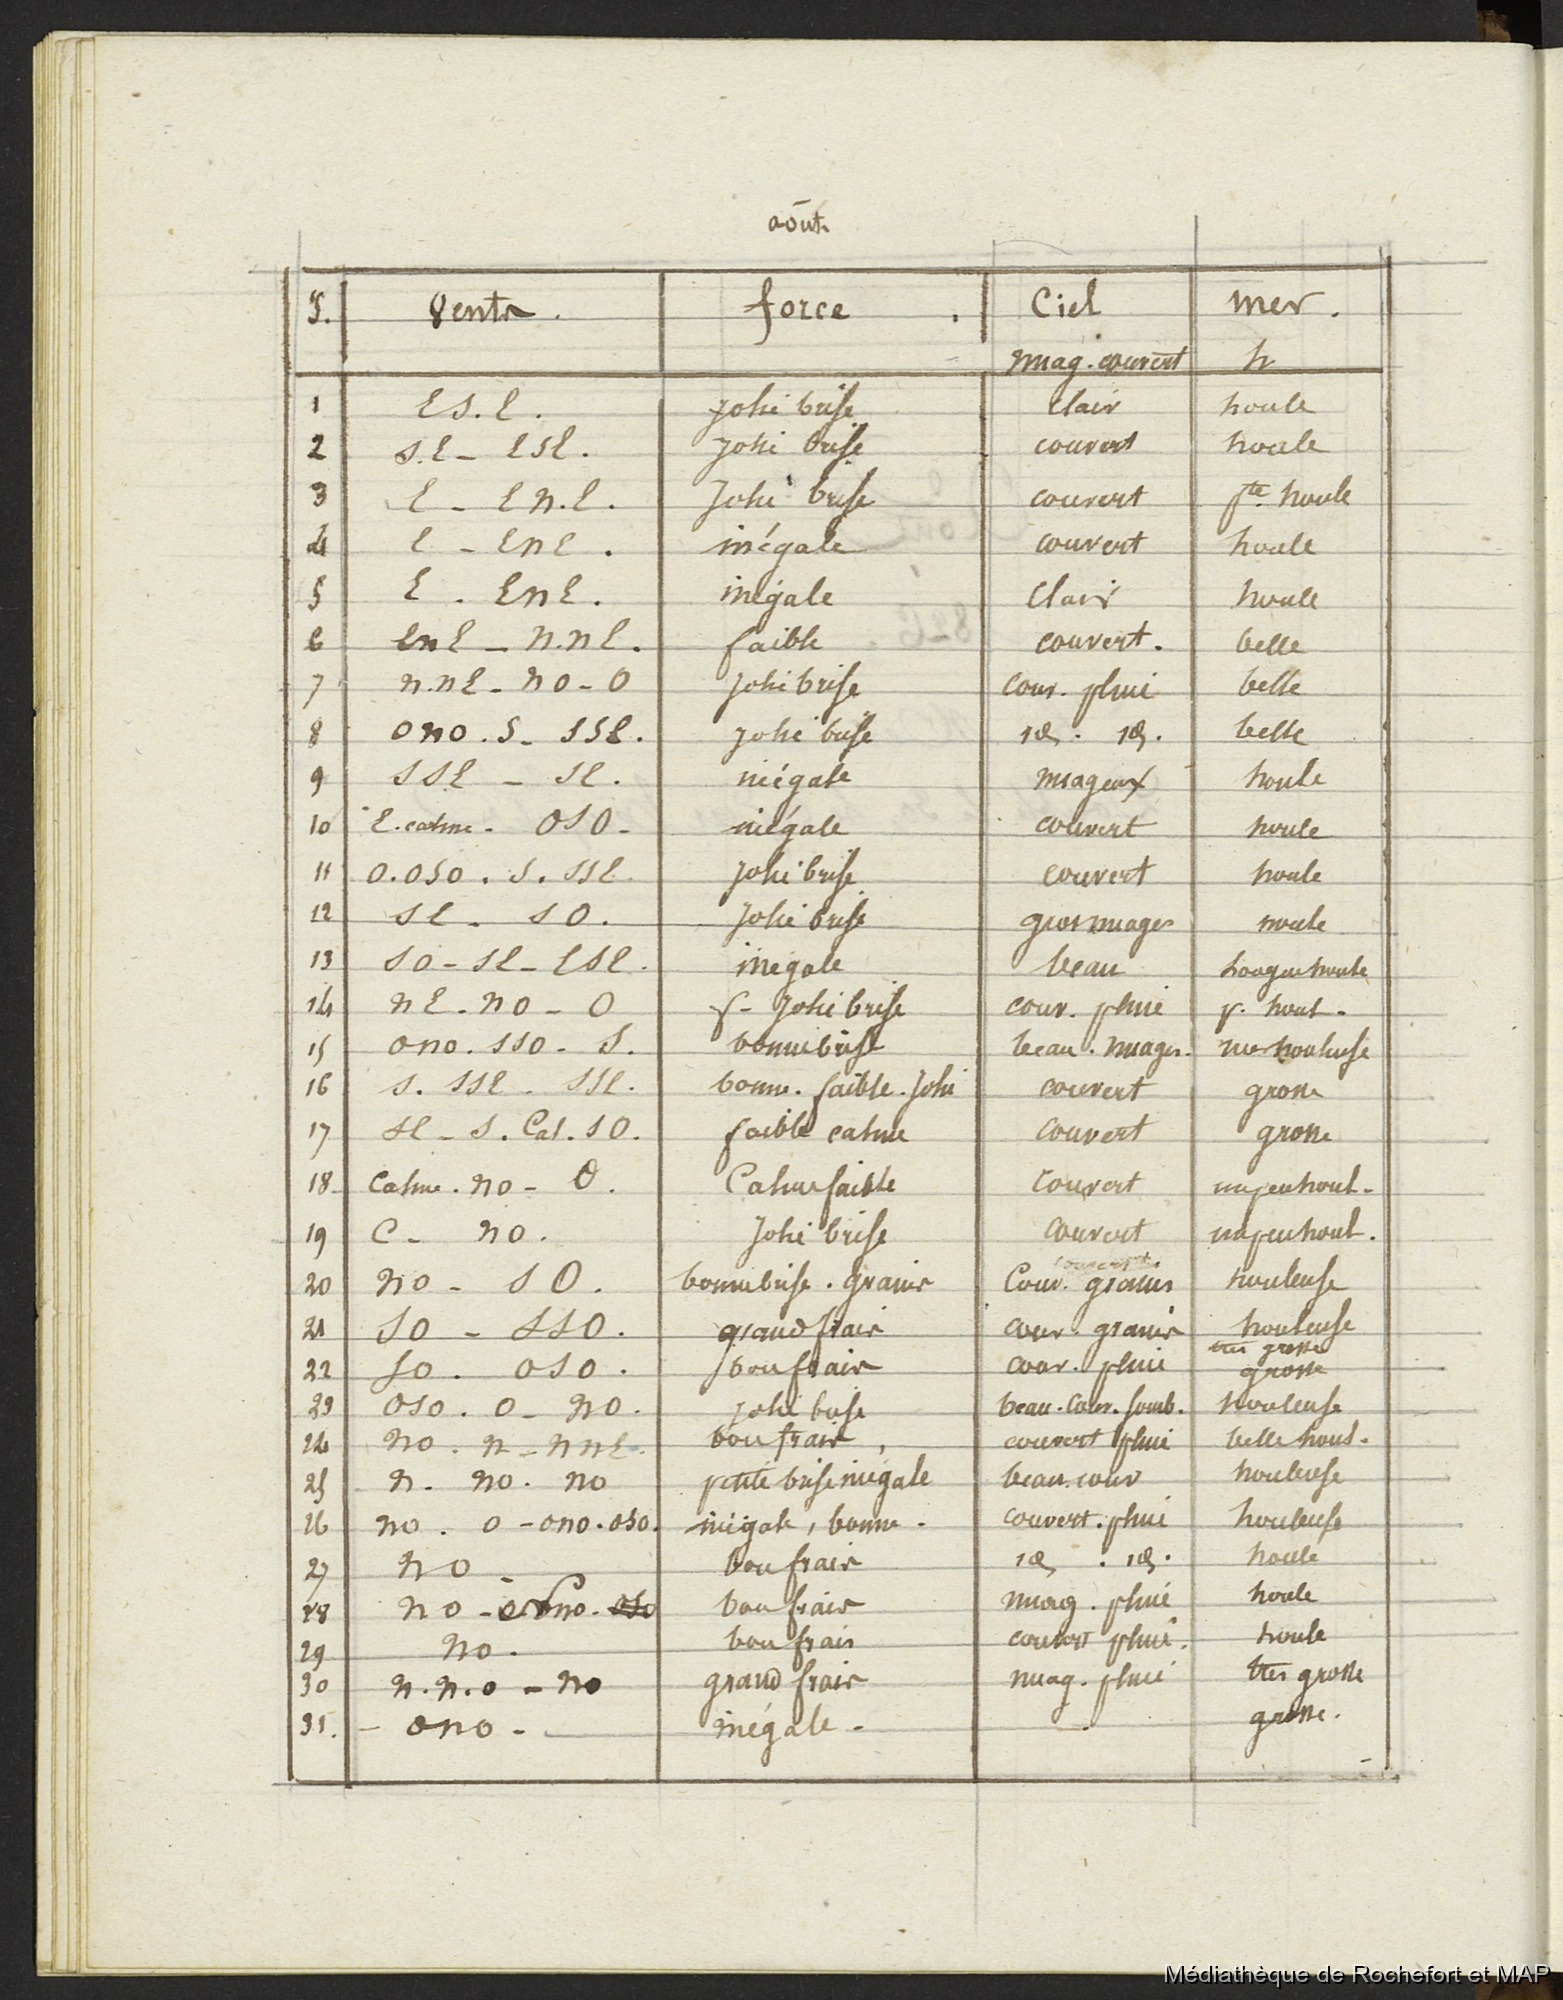 août.
J. Vents. force. Ciel mer.
nuag. couvert h
1 ES.E. Jolie brise clair houle
2 S.E - ESE. Jolie brise couvert houle
3 E - EN.E. Jolie brise couvert pte houle
4 E - ENE. inégale couvert houle
5 E. ENE. inégale Clair houle
6 ENE - N.NE. faible couvert. belle
7 N.NE - NO - O Jolie brise couv. pluie belle
8 ONO. S - SSE. Jolie brise id. id. belle
9 SSE - SE. inégale nuageux houle
10 E. calme - OSO - inégale couvert houle
11 O. OSO. S. SSE. Jolie brise couvert houle
12 SE - SO. Jolie brise gros nuages houle
13 SO - SE - ESE. inégale beau longue houle
14 NE. NO - O f - Jolie brise couv. pluie p. houl.
15 ONO. SSO - S. bonne brise beau. nuages. mer houleuse
16 S. SSE. SSE. bonne. faible. Jolie couvert grosse
17 SE - S. Cal. SO. faible calme couvert grosse
18 Calme. NO - O. Calme faible couvert un peu houl.
19 C - NO. Jolie brise couvert un peu houl.
20 NO - SO. bonne brise. grains Couv. grains houleuse
21 SO - SSO. grand frais couv. grains houleuse
très grosse
22 SO. OSO. bon frais couv. pluie grosse
23 OSO. O - NO. jolie brise beau. couv. somb. houleuse
24 NO. N - NNE. bon frais, couvert pluie belle houl.
25 N - NO. NO petite brise inégale beau. couv houleuse
26 NO. O - ONO. OSO. inégale, bonne. couvert. pluie houleuse
27 NO - bon frais id. id. houle
28 NO - ONO. OSO bon frais nuag. pluie houle
29 NO. bon frais couvert pluie. houle
30 N.N.O - NO grand frais nuag. pluie très grosse
31. - ONO - inégale - - grosse.
Médiathèque de Rochefort et MAP